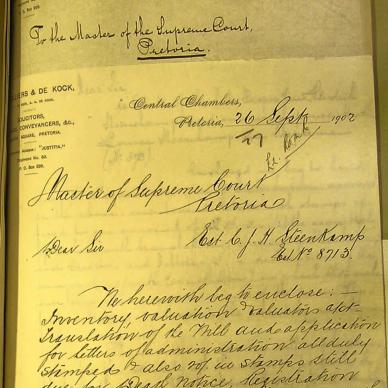 To the Master of the Supreme Court,
Pretoria.
& DE KOCK,
SOLICITORS
CONVEYANCERS, &c.,
SQUARE, PRETORIA.
"JUSTITIA."
P. O. Box 220.
Central Chambers,
Pretoria, 26 Sept 1902
Master of Supreme Court
Pretoria
Dear Sir
Est. C. J. H. Steenkamp
Est No 8713.
We herewith beg to enclose:—
Inventory, valuation & valuators act
Translation of the Will and application
for letters of administration all duly
stamped & also 7/- in stamps still
due for Death Notice, Registration